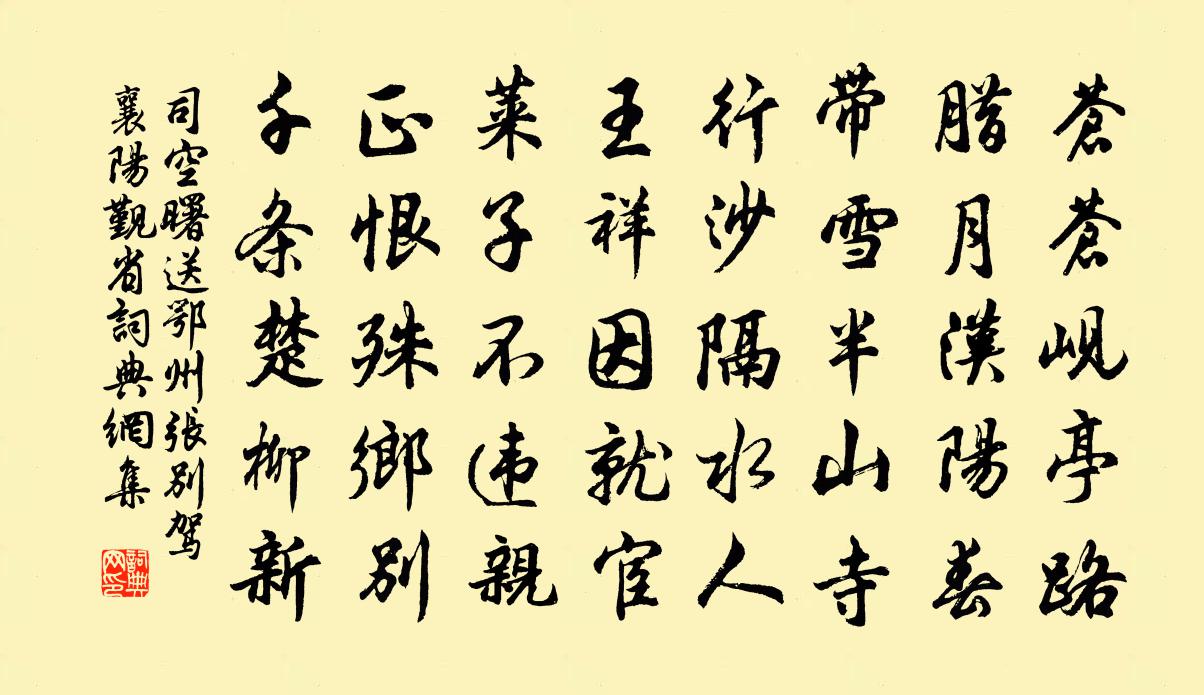 蒼蒼峴亭路
腊月漢陽春
带雪半山寺
行沙隔水人
王祥因就宦
莱子不违親
正恨殊鄉别
千条楚柳新
司空曙送鄂州張别驾
襄陽覲省詞典網集
詞典网印